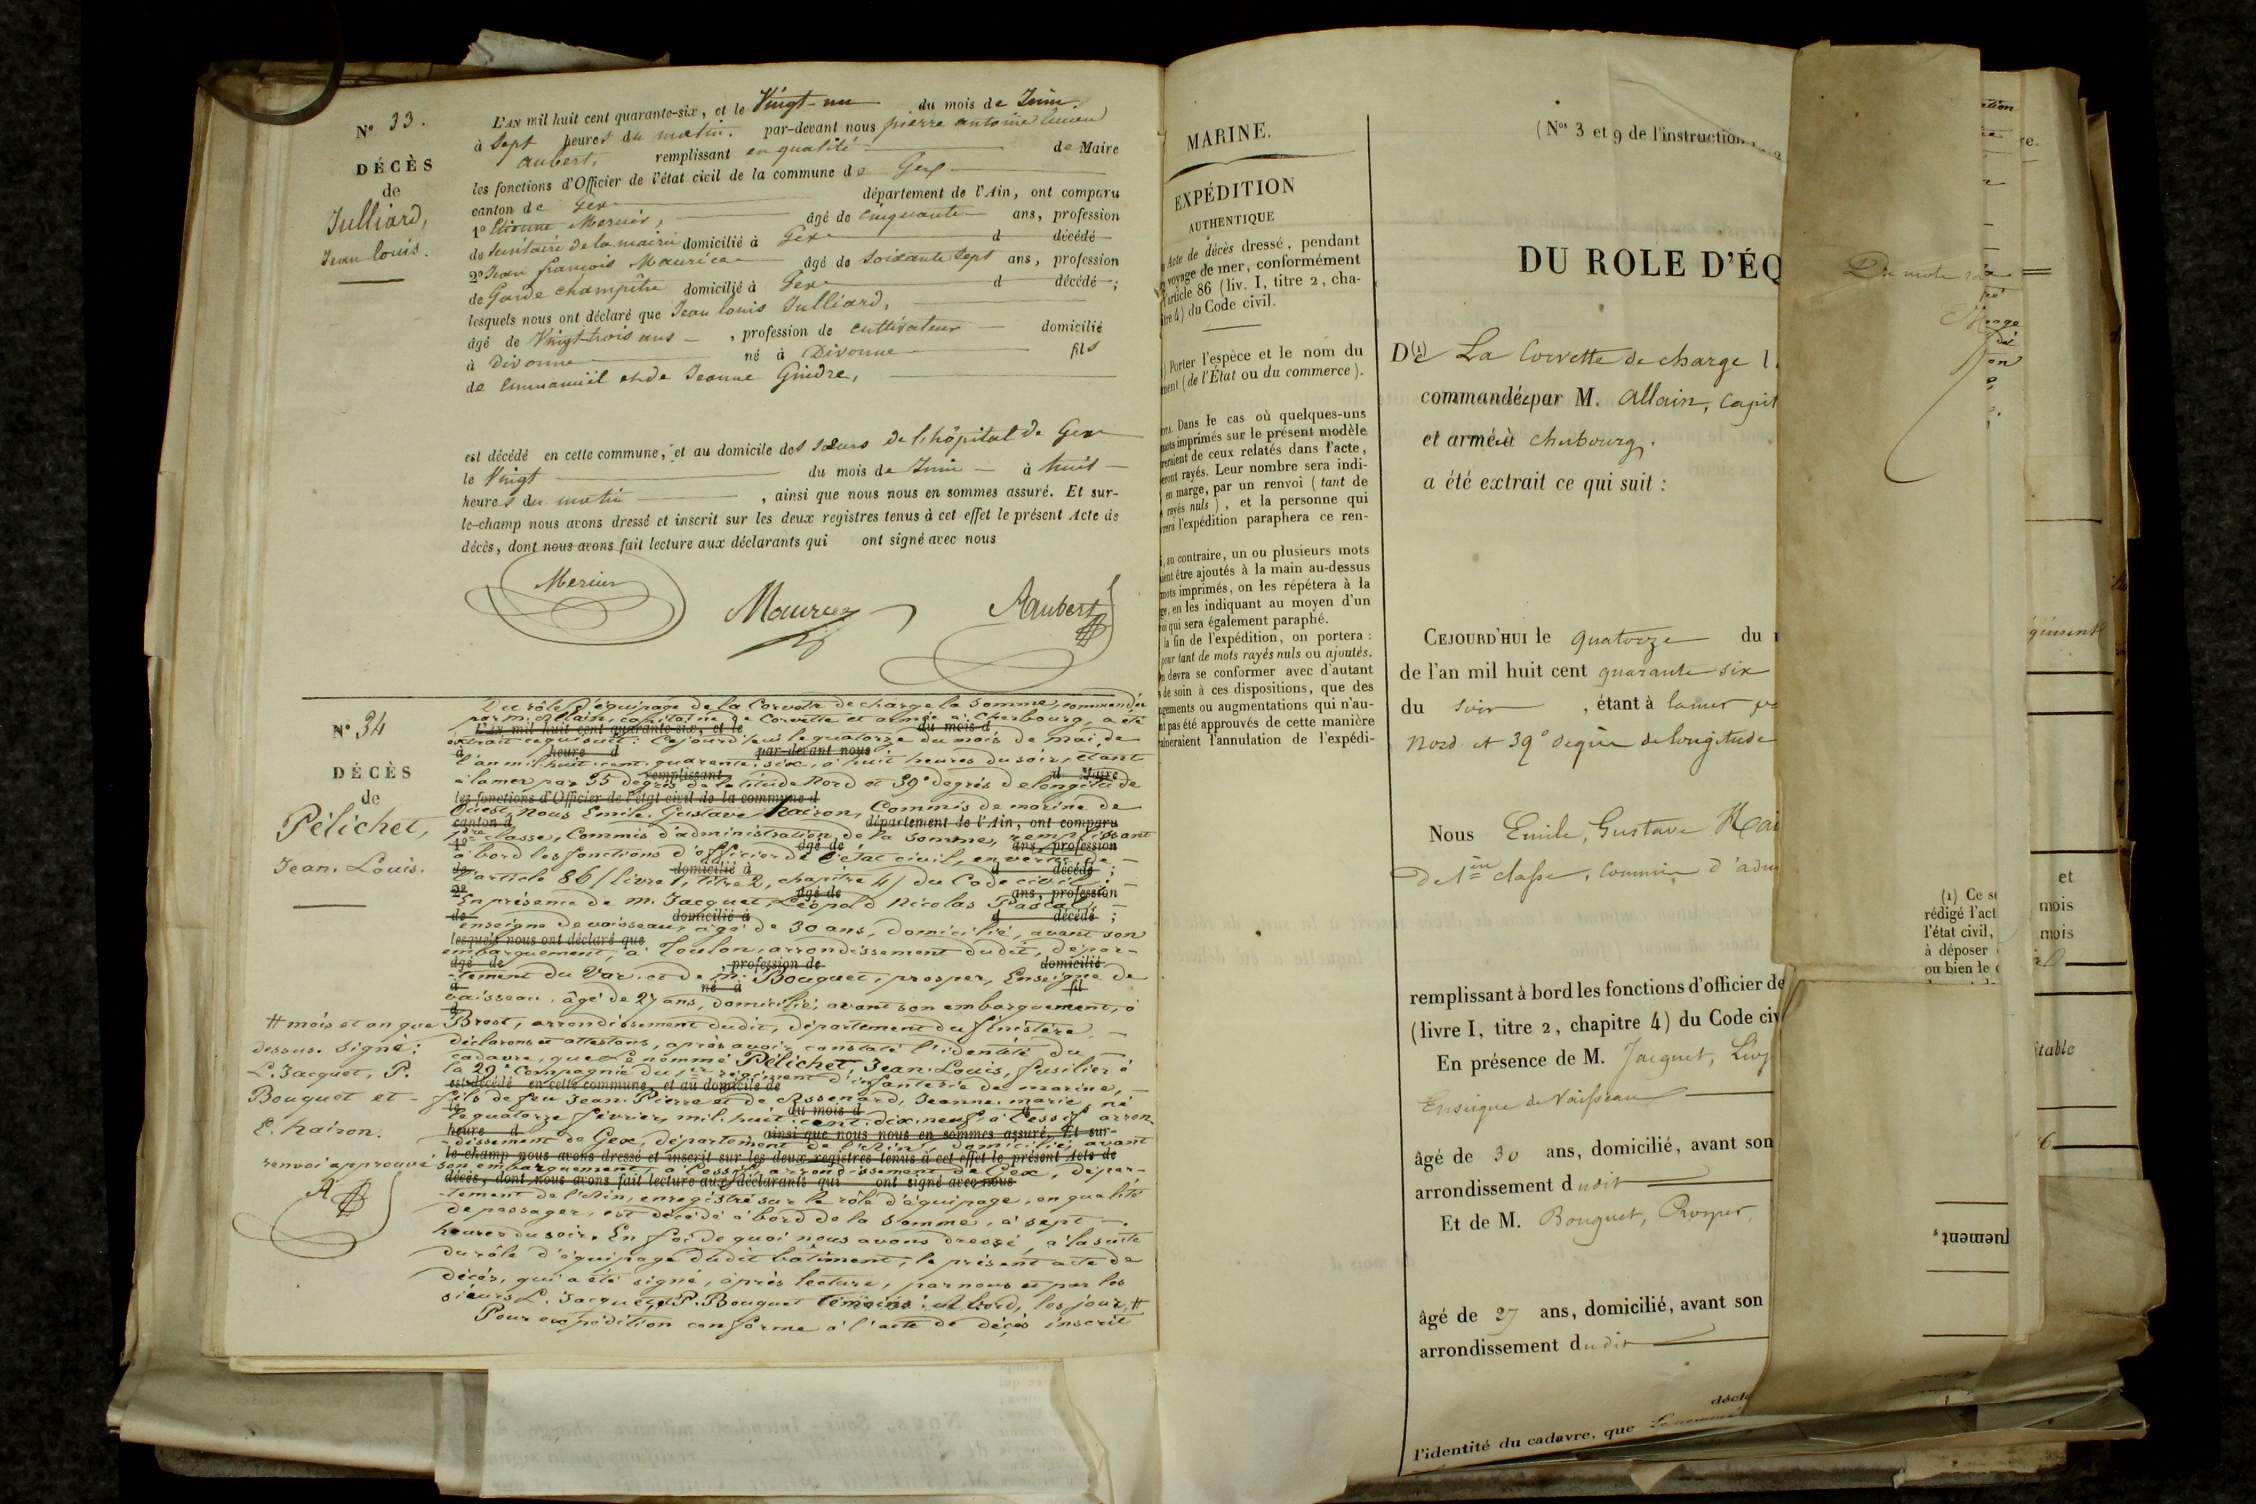 N° 33.
DÉCÈS
de
Julliard,
Jean louis.
L'AN mil huit cent quarante-six, et le Vingt-un du mois de Juin.
à Sept heures du matin. par-devant nous pierre antoine
aubert, remplissant en qualité de Maire
les fonctions d'Officier de l'état civil de la commune de Gex
canton de Gex département de l'Ain, ont comparu
1° Etienne Mercier, âgé de Cinquante ans, profession
de de la mairie domicilié à Gex d décédé
2° Jean françois Maurice âgé de Soixante Sept ans, profession
de Garde champêtre domicilié à Gex d décédé ;
lesquels nous ont déclaré que Jean louis Julliard,
âgé de Vingt trois ans , profession de cultivateur domicilié
à Divonne né à Divonne fils
de Emmanuël et de Jeanne Gindre,
est décédé en cette commune, et au domicile des sœurs de l'hôpital de Gex
le Vingt du mois de Juin à huit
heures du matin , ainsi que nous nous en sommes assuré. Et sur-
le-champ nous avons dressé et inscrit sur les deux registres tenus à cet effet le présent Acte de
décès, dont nous avons fait lecture aux déclarants qui ont signé avec nous
Mercier
Maurice
Aubert
N° 34
DÉCÈS
de
Pélichet,
Jean. Louis.
Du rôle d'équipage de la Corvette de charge la Somme, commandée
par M. Allain, capitaine de Corvette et armée à Cherbourg, a été
L'AN mil huit cent quarante-six, et le du mois d
extrait ce qui suit : Cejourd'hui le quatorze du mois de mai, de
à heure d par-devant nous
l'an mil. huit. cent. quarante. six, à huit heures du soir, étant
remplissant d Maire
à la mer par 35 degrés de latitude Nord et 39° degrés de longitude
les fonctions d'Officier de l'état civil de la commune d
Ouest, Nous Emile. Gustave Hairon, Commis de marine de
canton d département de l'Ain, ont comparu
1ère classe, Commis d'administration de la Somme, remplissant
1° âgé de ans, profession
à bord les fonctions d'officier de l'état civil, en vertu de
de domicilié à d décédé ;
l'article 86 (livre 1, titre 2, chapitre 4) du Code civil ;
2° âgé de ans, profession
En présence de M. Jacquet, Léopold Nicolas Pascal,
de domicilié à d décédé ;
enseigne de vaisseau, âgé de 30 ans, domicilié, avant son
lesquels nous ont déclaré que
embarquement, à Toulon, arrondissement dudit, dépar-
âgé de , profession de domicilié
-tement du Var. et de M. Bouquet, prosper, Enseigne de
à né à fil
vaisseau, âgé de 27 ans, domicilié, avant son embarquement, à
d
Brest, arrondissement dudit, département du finistère
déclarons et attestons, après avoir constaté l'identité du
cadavre, que Le nommé Pélichet, Jean. Louis, fusilier à
la 29e Compagnie du 1er régiment d'infanterie de marine,
est décédé en cette commune, et au domicile de
fils de feu Jean. Pierre et de Assenard, Jeanne. marie, né
le du mois d à
le quatorze février, mil. huit. cent. dix. neuf, à Cessy, arron-
heure d ainsi que nous nous en sommes assuré. Et sur-
-dissement de Gex, département de l'Ain, domicilié, avant
le-champ nous avons dressé et inscrit sur les deux registres tenus à cet effet le présent Acte de
son embarquement, à Cessy, arrondissement de Gex, dépar-
décès, dont nous avons fait lecture aux déclarants qui ont signé avec nous
-tement de l'Ain, enregistré sur le rôle d'équipage, en qualité
de passager, est décédé à bord de la Somme, à sept
heures du soir. En foi de quoi nous avons dressé, à la suite
du rôle d'équipage dudit bâtiment, le présent acte de
décès, qui a été signé, après lecture, par nous et par les
sieurs L. Jacquet et P. Bouquet témoins : A bord, les jour, #
Pour expédition conforme à l'acte de décès inscrit
# mois et an que
dessus. Signé :
L. Jacquet, P.
Bouquet et
E. hairon.
renvoi approuvé
A
MARINE.
EXPÉDITION
AUTHENTIQUE
Acte de décès dressé, pendant
voyage de mer, conformément
l'article 86 (liv. I, titre 2, cha-
itre 4) du Code civil.
) Porter l'espèce et le nom du
ment (de l'État ou du commerce).
Dans le cas où quelques-uns
mots imprimés sur le présent modèle
reraient de ceux relatés dans l'acte,
eront rayés. Leur nombre sera indi-
en marge, par un renvoi (tant de
rayés nuls), et la personne qui
rera l'expédition paraphera ce ren-
, au contraire, un ou plusieurs mots
aient être ajoutés à la main au-dessus
mots imprimés, on les répétera à la
ge, en les indiquant au moyen d'un
oi qui sera également paraphé.
la fin de l'expédition, on portera :
pour tant de mots rayés nuls ou ajoutés.
devra se conformer avec d'autant
de soin à ces dispositions, que des
ngements ou augmentations qui n'au-
nt pas été approuvés de cette manière
raîneraient l'annulation de l'expédi-
(Nos 3 et 9 de l'instruction
DU ROLE D'ÉQ
D(1)e La Corvette de charge l
commandée par M. Allain, Capit
et armée à Cherbourg.
a été extrait ce qui suit :
CEJOURD'HUI le quatorze du
de l'an mil huit cent quarante six
du soir , étant à la mer
Nord et 39° degrés de longitude
Nous Emile, Gustave Hai
de 1ère classe, Commis d'adm
remplissant à bord les fonctions d'officier de
(livre I, titre 2, chapitre 4) du Code civ
En présence de M. Jacquet, Léop
Enseigne de Vaisseau
âgé de 30 ans, domicilié, avant son
arrondissement dudit
Et de M. Bouquet, Prosper,
âgé de 27 ans, domicilié, avant son
arrondissement dudit
décla
l'identité du cadavre, que Le nommé
(1) Ce s
rédigé l'act
l'état civil,
à déposer
ou bien le
et
mois
mois
table
luement,